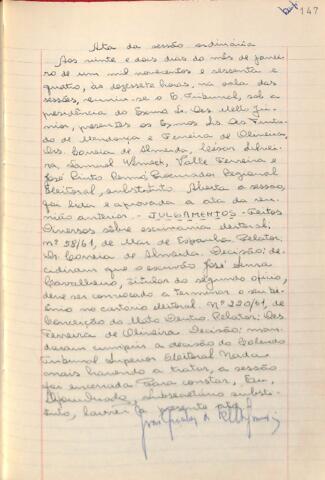 147
Ata da sessão ordinária
Aos vinte e dois dias do mês de janei-
ro de um mil novecentos e sessenta e
quatro, às dezessete horas, na sala das
sessões, reuniu-se o E. Tribunal, sob a
presidência do Exmo Sr. Des. Mello Jú-
nior, presentes os Exmos Srs. Des. Furta-
do de Mendonça e Ferreira de Oliveira,
Drs. Correia de Almeida, Silvei-
ra, Samuel Werneck, Valle Ferreira e
José Pinto Procurador Regional
Eleitoral, substituto. Aberta a sessão,
foi lida e aprovada a ata da reu-
nião anterior. - JULGAMENTOS - Feitos
diversos sôbre escrivania eleitoral:
nº 58/61, de Mar de Espanha. Relator:
Dr. Correia de Almeida. Decisão: de-
cidiram que o escrivão José Lima
Cavalheiro, titular do segundo ofício,
deve ser convocado a terminar o seu bi-
ênio no cartório eleitoral. Nº 220/61, de
Conceição do Mato Dentro. Relator: Des.
Ferreira de Oliveira. Decisão: man-
daram cumprir a decisão do Colendo
Tribunal Superior Eleitoral. Nada
mais havendo a tratar, a sessão
foi encerrada. Para constar, Eu,
subsecretário substi-
tuto, lavrei a presente ata.